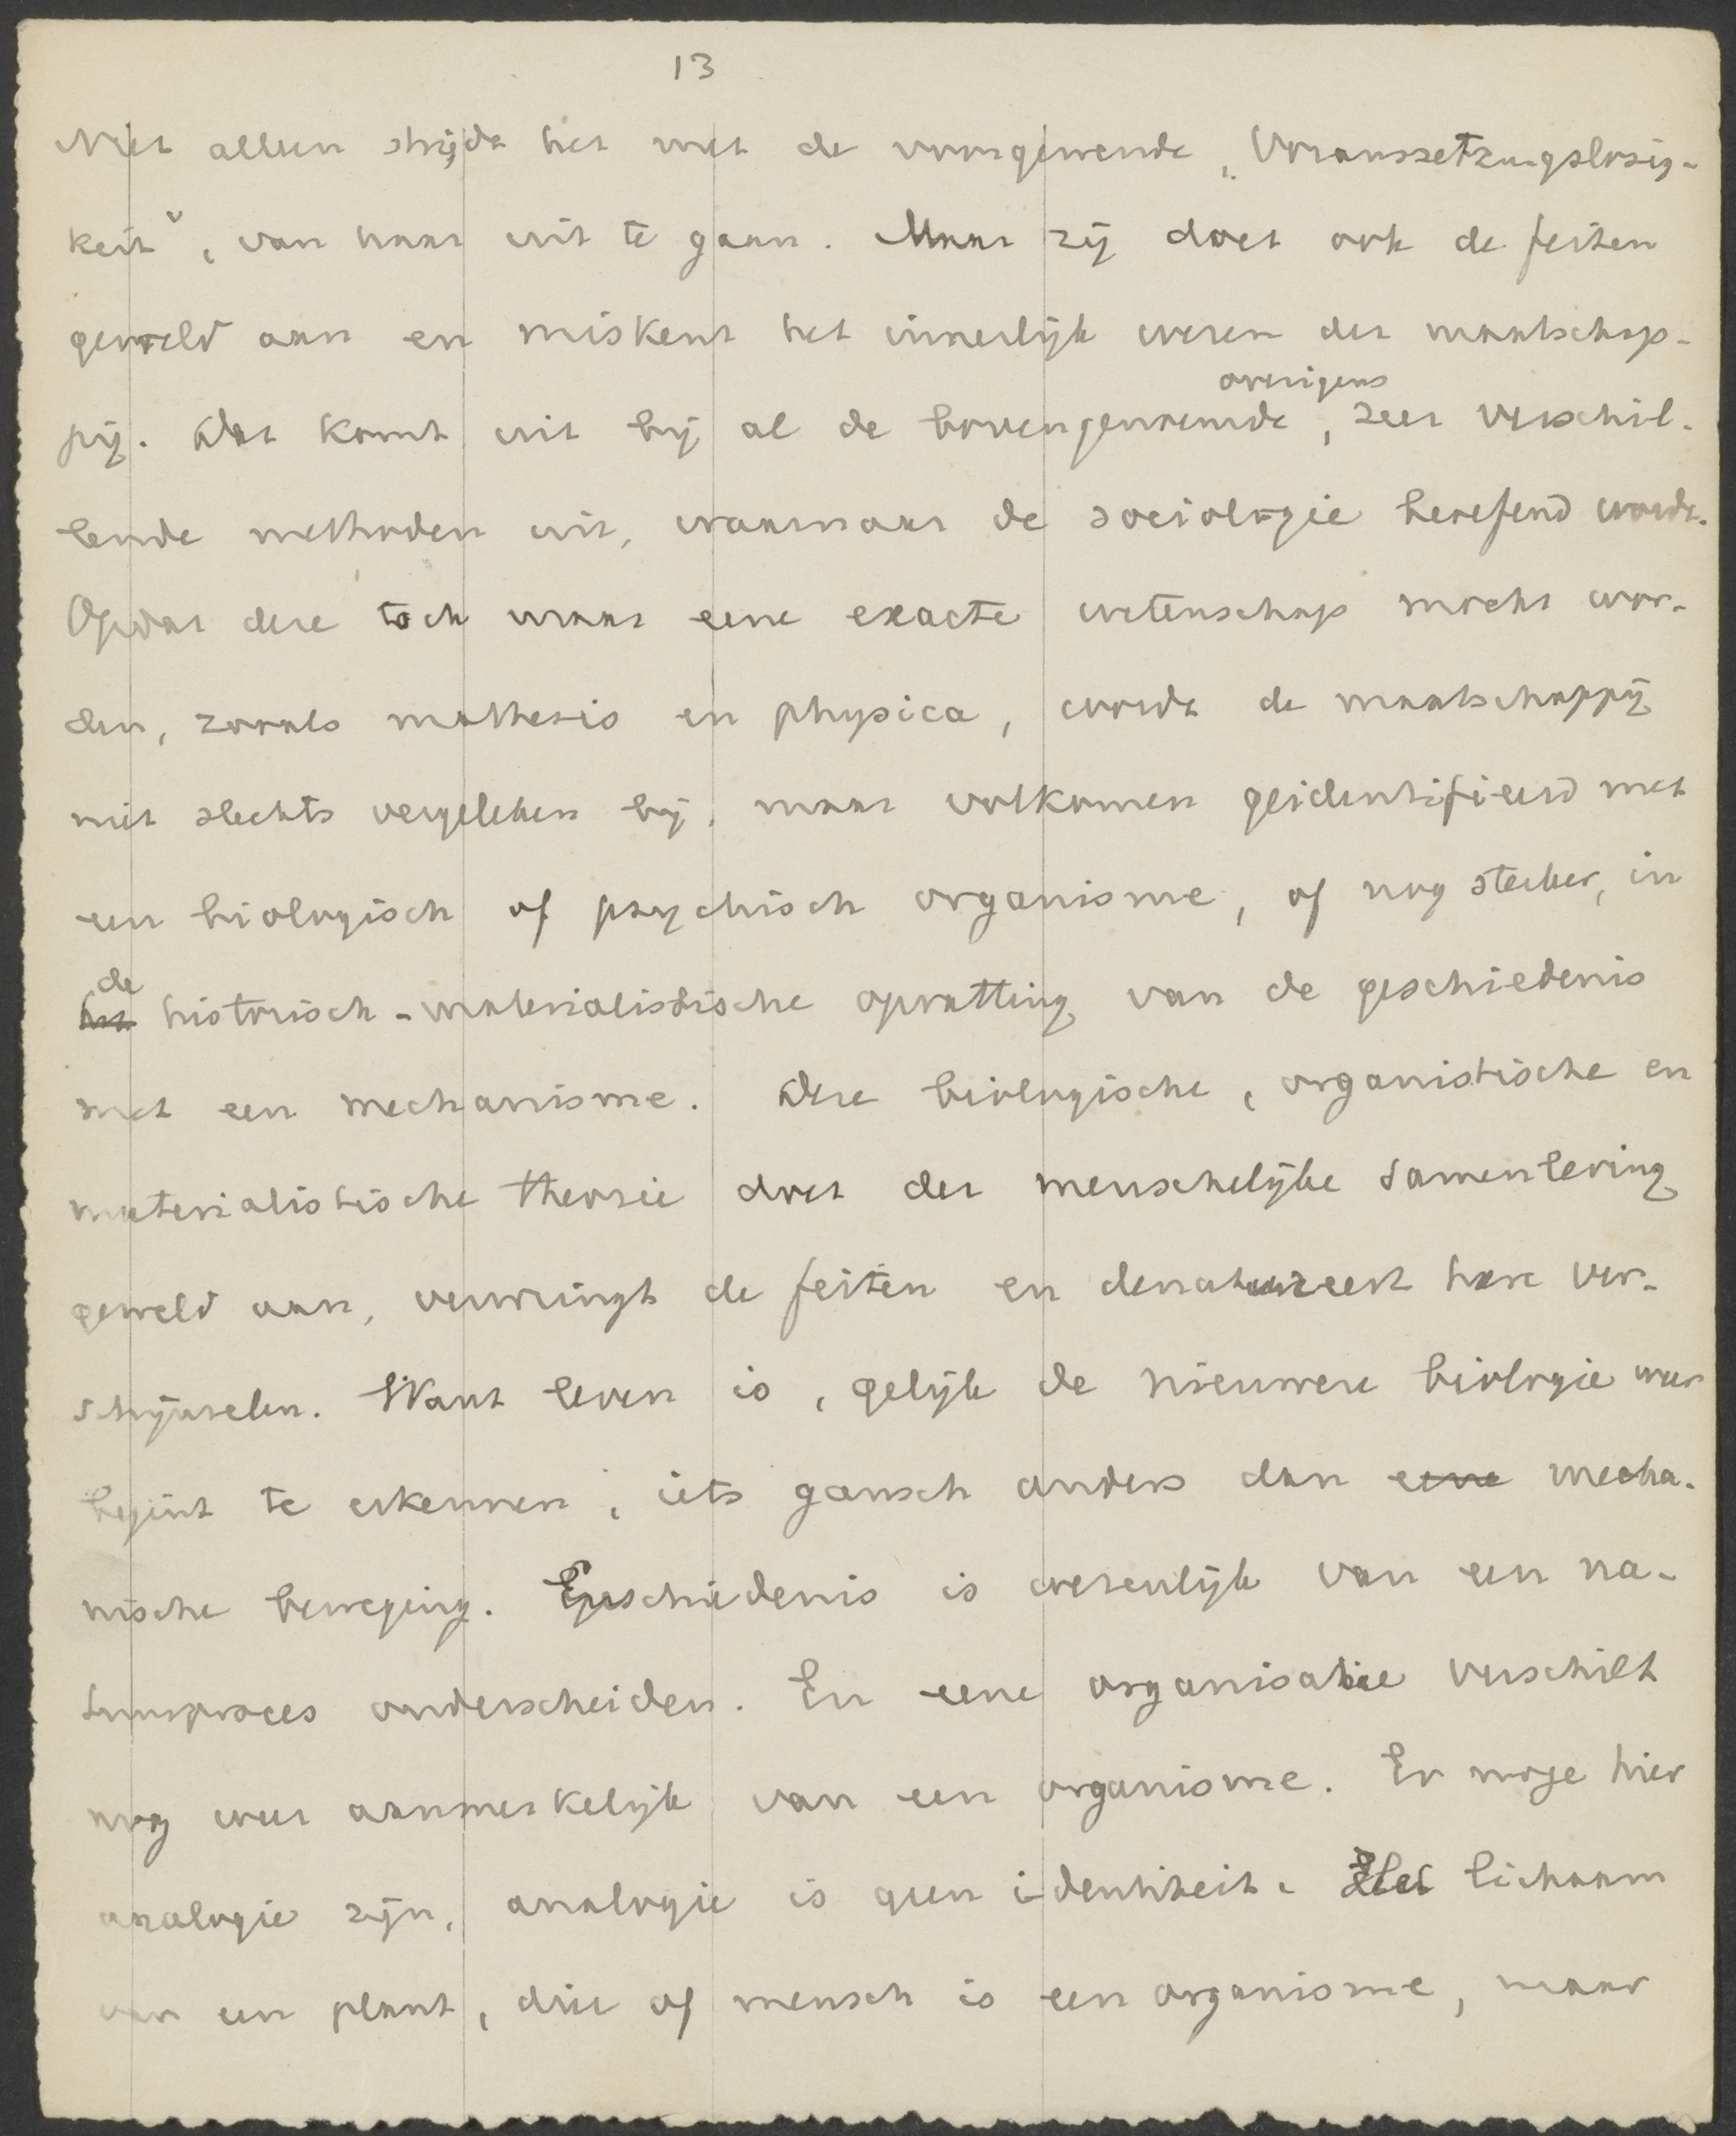 13
Niet alleen strijdt het met de voorgewende „Voraussetzungslosig-
keit”, van haar uit te gaan. Maar zij doet ook de feiten
geweld aan en miskent het innerlijk wezen der maatschap-
overigens
pij. Dat komt uit bij al de bovengenoemde, zeer verschil-
lende methoden uit, waarnaar de sociologie beoefend wordt.
Opdat deze toch maar eene exacte wetenschap mocht wor-
den, zooals mathesis en physica, wordt de maatschappij
niet slechts vergeleken bij, maar volkomen geidentifieerd met
een biologisch of psychisch organisme, of nog sterker, in
de
het historisch-materialistische opvatting van de geschiedenis
met een mechanisme. Deze biologische, organistische en
materialistische theorie doet der menschelijke samenleving
geweld aan, verwringt de feiten en denatureert hare ver-
schijnselen. Want leven is, gelijk de nieuwere biologie weer
begint te erkennen, iets gansch anders dan eene mecha-
nische beweging. Geschiedenis is wezenlijk van een na-
tuurproces onderscheiden. En eene organisatie verschilt
nog weer aanmerkelijk van een organisme. Er moge hier
analogie zijn, analogie is geen identiteit. Het lichaam
van een plant, dier of mensch is een organisme, maar